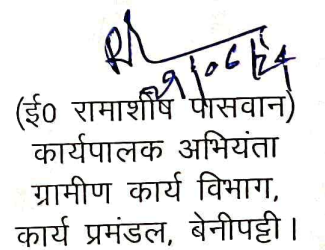 (ई0 रामाशीष पासवान)
कार्यपालक अभियंता
ग्रामीण कार्य विभाग,
कार्य प्रमंडल, बेनीपट्टी।